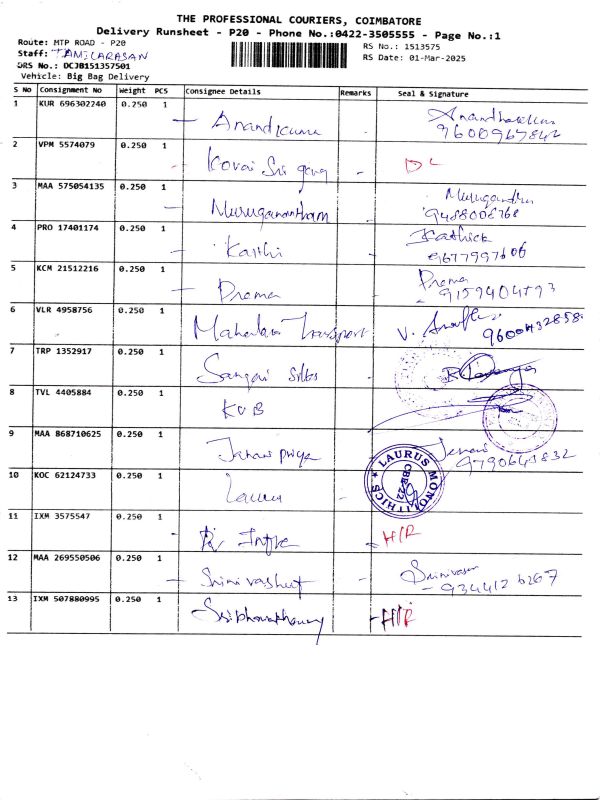 THE PROFESSIONAL COURIERS, COIMBATORE
Delivery Runsheet - P20 - Phone No.:0422-3505555 - Page No.:1
Route: MTP ROAD - P20
RS No.: 1513575
Staff: TAMILARASAN
RS Date: 01-Mar-2025
DRS No.: DCJB151357501
Vehicle: Big Bag Delivery
S No Consignment No Weight PCS Consignee Details Remarks Seal & Signature
1 KUR 696302240 0.250 1 Anandkumar
9600967842
2 VPM 5574079 0.250 1 Kovai Sri DL
3 MAA 575054135 0.250 1 Muruganantham
9488008768
4 PRO 17401174 0.250 1 Karthi Kathick
9677997606
5 KCM 21512216 0.250 1 Prema Prema
9159404793
6 VLR 4958756 0.250 1 Transport V.
9600432858
7 TRP 1352917 0.250 1 Sangai silks
8 TVL 4405884 0.250 1 KVB
9 MAA 868710625 0.250 1 Janani priya Janani
9790643832
10 KOC 62124733 0.250 1 LAURUS MONOLITHICS
CBE-22
11 IXM 3575547 0.250 1 H/R
12 MAA 269550506 0.250 1 Srinivasan
9344126267
13 IXM 507880995 0.250 1 H/R